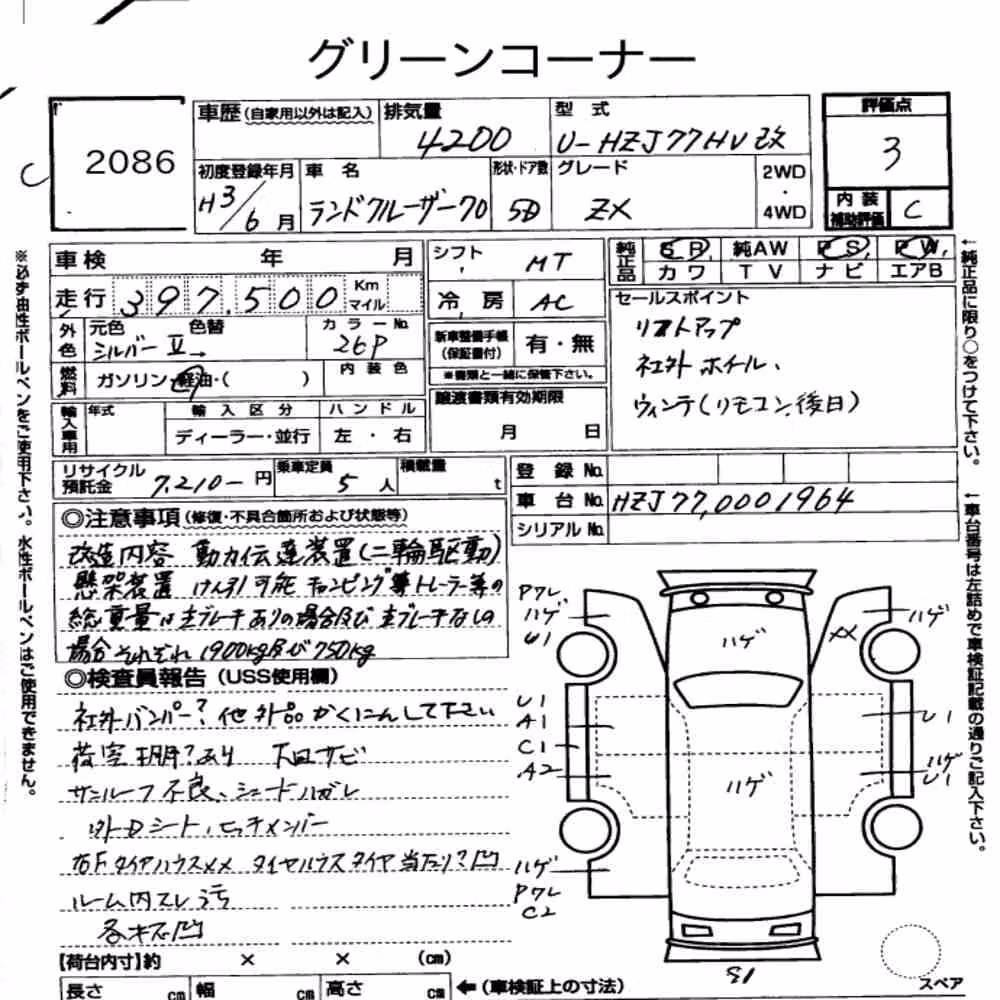 グリーンコーナー
2086
車歴(自家用以外は記入)
排気量
4200
型式
U-HZJ77HV改
評価点
3
内装補助評価
C
C
初度登録年月
H3/6月
車名
ランドクルーザー70
形状・ドア数
5D
グレード
ZX
2WD
・
4WD
車検 年 月
走行 397,500 Km マイル
シフト
MT
冷房
AC
純正品
SR 純AW PS PW
カワ TV ナビ エアB
外色
元色 色替
シルバーII→
カラーNo.
26P
燃料
ガソリン・軽油・( )
内装色
輸入車用
年式
輸入区分
ディーラー・並行
ハンドル
左・右
新車整備手帳(保証書付)
有・無
※書類と一緒に保管下さい。
譲渡書類有効期限
月 日
セールスポイント
リフトアップ
社外ホイール、
ウィンチ(リモコン、後日)
リサイクル預託金
7,210-円
乗車定員
5人
積載量
t
登録No.
車台No.
HZJ77,0001964
シリアルNo.
◎注意事項(修復・不具合箇所および状態等)
改造内容 動力伝達装置(二輪駆動)
懸架装置 けん引可能キャンピング等トレーラー等の
総重量は主ブレーキありの場合及び主ブレーキなしの
場合それぞれ1900kg及び750kg
◎検査員報告(USS使用欄)
社外バンパー?他外品かくにんして下さい
荷室 あり 下回サビ
サンルーフ不良、シェードハガレ
外Dシート、ヒッチメンバー
右Fタイヤハウスメメ タイヤハウスタイヤ当たり?凹
ルーム内スレ汚
各キズ凹
【荷台内寸】約 × × (cm)
長さ cm 幅 cm 高さ cm
←(車検証上の寸法)
Pワレ
ハゲ
U1
U1
A1
C1
A2
ハゲ
Pワレ
C2
ハゲ
ハゲ
XX
ハゲ
U1
ハゲ
U1
スペア
※必ず油性ボールペンをご使用下さい。水性ボールペンはご使用できません。
←純正品に限り○をつけて下さい。
←車台番号は左詰めで車検証記載の通りご記入下さい。